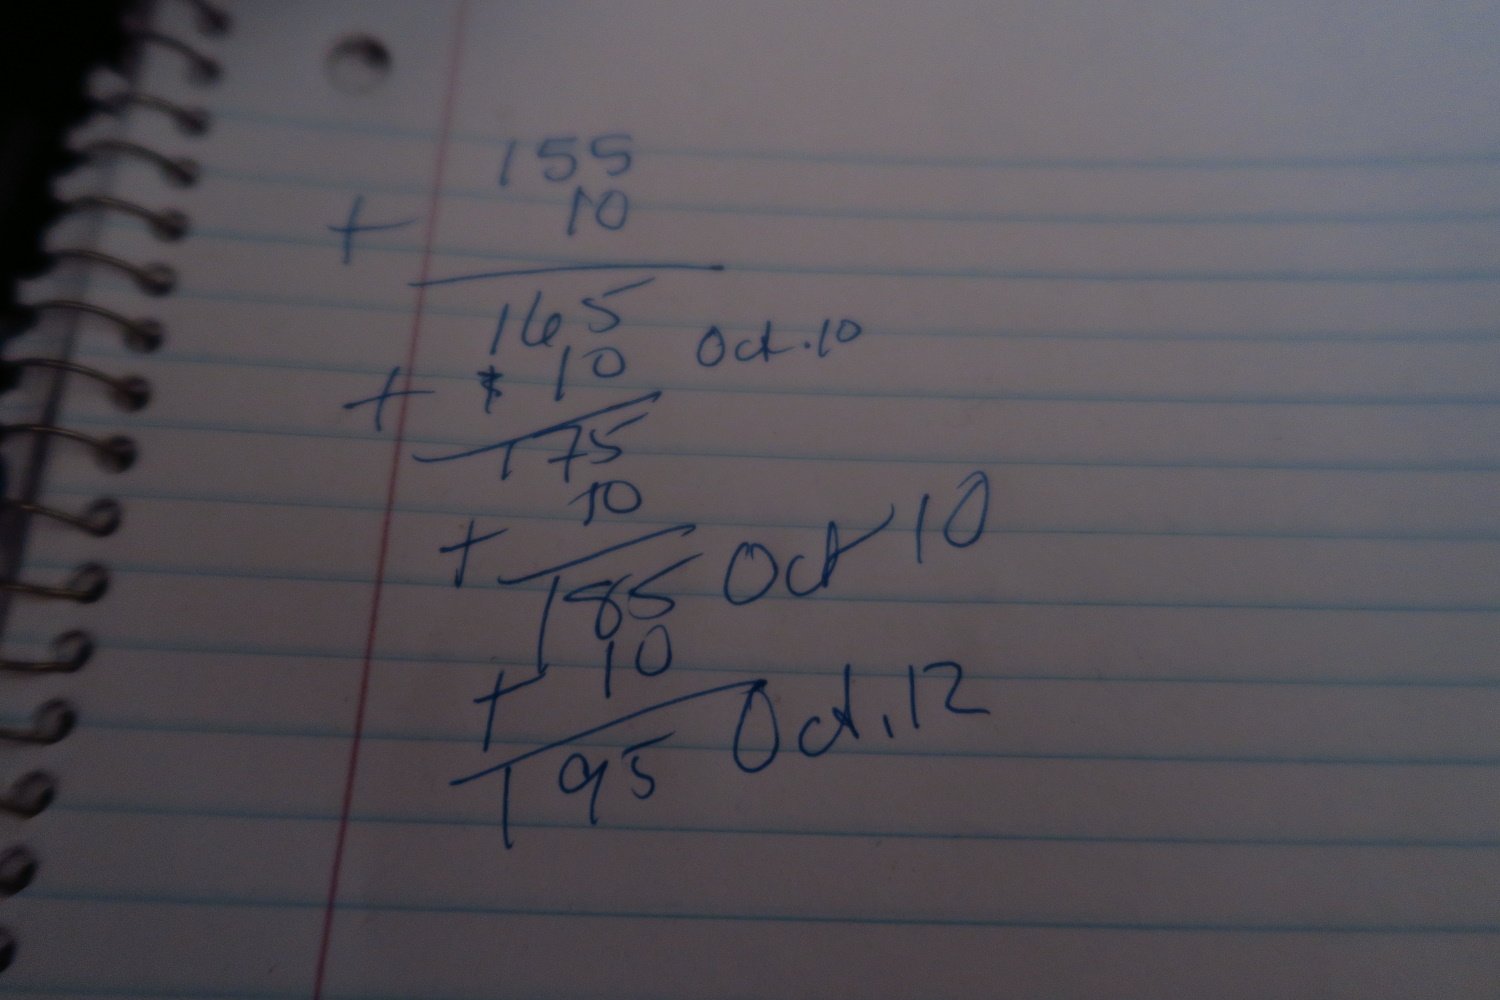 155
+ 10
165
+ 10 Oct. 10
175
+ 10
185 Oct 10
+ 10
195 Oct. 12